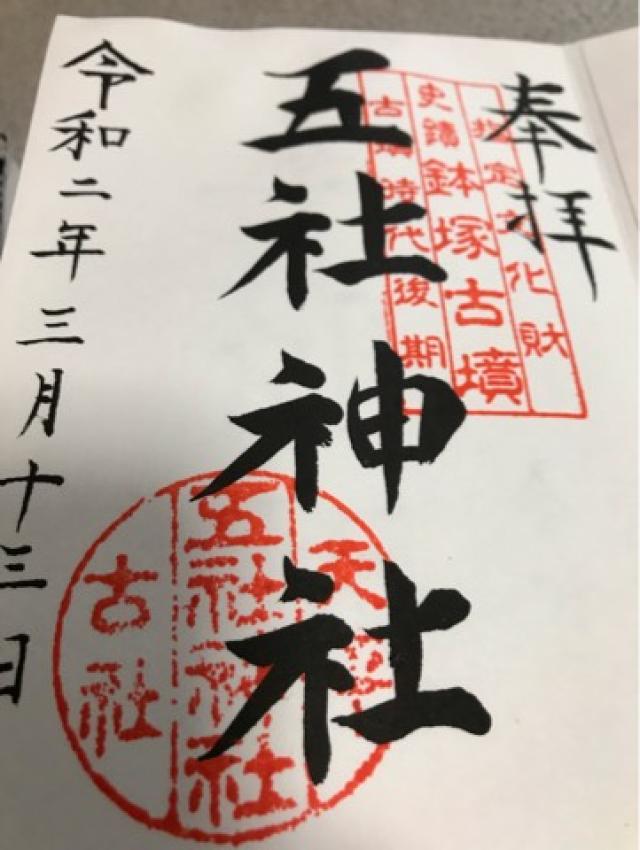 奉拝
指定文化財
史蹟鉢塚古墳
古墳時代後期
五社神社
天
五社神社
古社
令和二年三月十三日